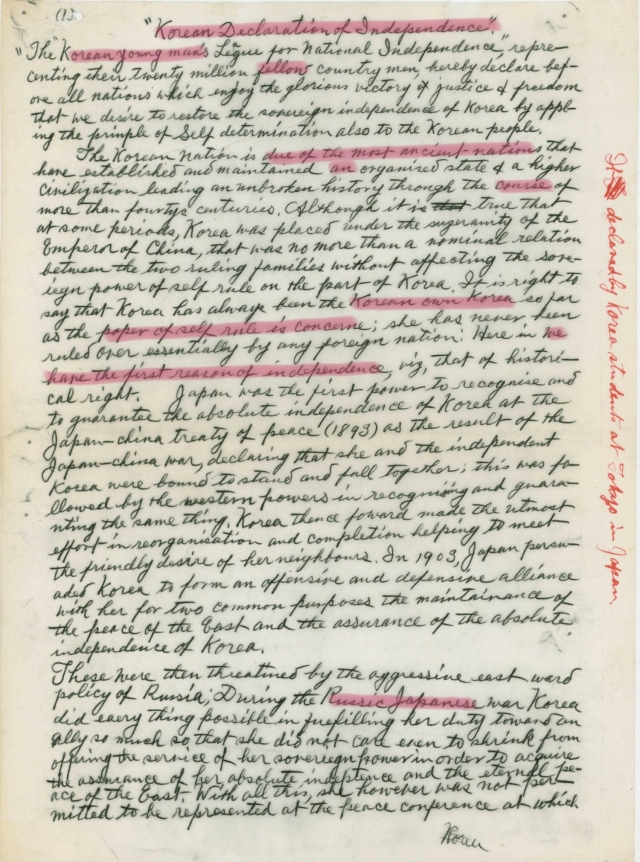 (1).
"Korean Declaration of Independence".
"The "Korean young man's Legue for National Independence," repre-
centing their twenty million fellow country men, hereby declare bef-
ore all nations which enjoy the glorious victory of justice & freedom
that we desire to restore the sovereign independence of Korea by appl-
ing the prinple of Self determination also to the Korean people.
The Korean Nation is due of the most ancient nations that
have established and maintained an organised state & a higher
civilization leading an unbroken history through the course of
more than fourtys centuries. Although it is that true that
at some periods, Korea was placed under the sugerainty of the
Emperor of China, that was no more than a nominal relation
between the two ruling families without affecting the sove-
reign power of self rule on the part of Korea. It is right to
say that Korea has always been the Korean own Korea so far
as the poper of self rule is concerne; she has never been
ruled over essentially by any foreign nation: Here in we
have the first reason of independence, viz, that of histori-
cal right. Japan was the first power to recognise and
to guarantee the absolute independence of Korea at the
Japan-china treaty of peace (1893) as the result of the
Japan-china war, declaring that she and the independent
Korea were bound to stand and fall together; this was fo-
llowed by the western powers in recognising and guara-
nting the same thing. Korea thence foward made the utmost
effort in reorganisation and completion helping to meet
the friendly desire of her neighbours. In 1903, Japan persu-
aded Korea to form an offensive and defensive alliance
with her for two common purposes the maintainance of
the peace of the East and the assurance of the absolute
independence of Korea.
These were then threatined by the aggressive east ward
policy of Russia; During the Russic Japanese war Korea
did eaery thing possible in fuefilling her duty toward an
ally so much so that she did not care even to shrink from
offiring the service of her sovereign power in order to acquire
the assurance of her absolute indeptence and the eternal pe-
ace of the East. With all this, she however was not per-
mitted to be represented at the peace conference at which
Korea
It declared by Korea students at Tokyo in Japan.